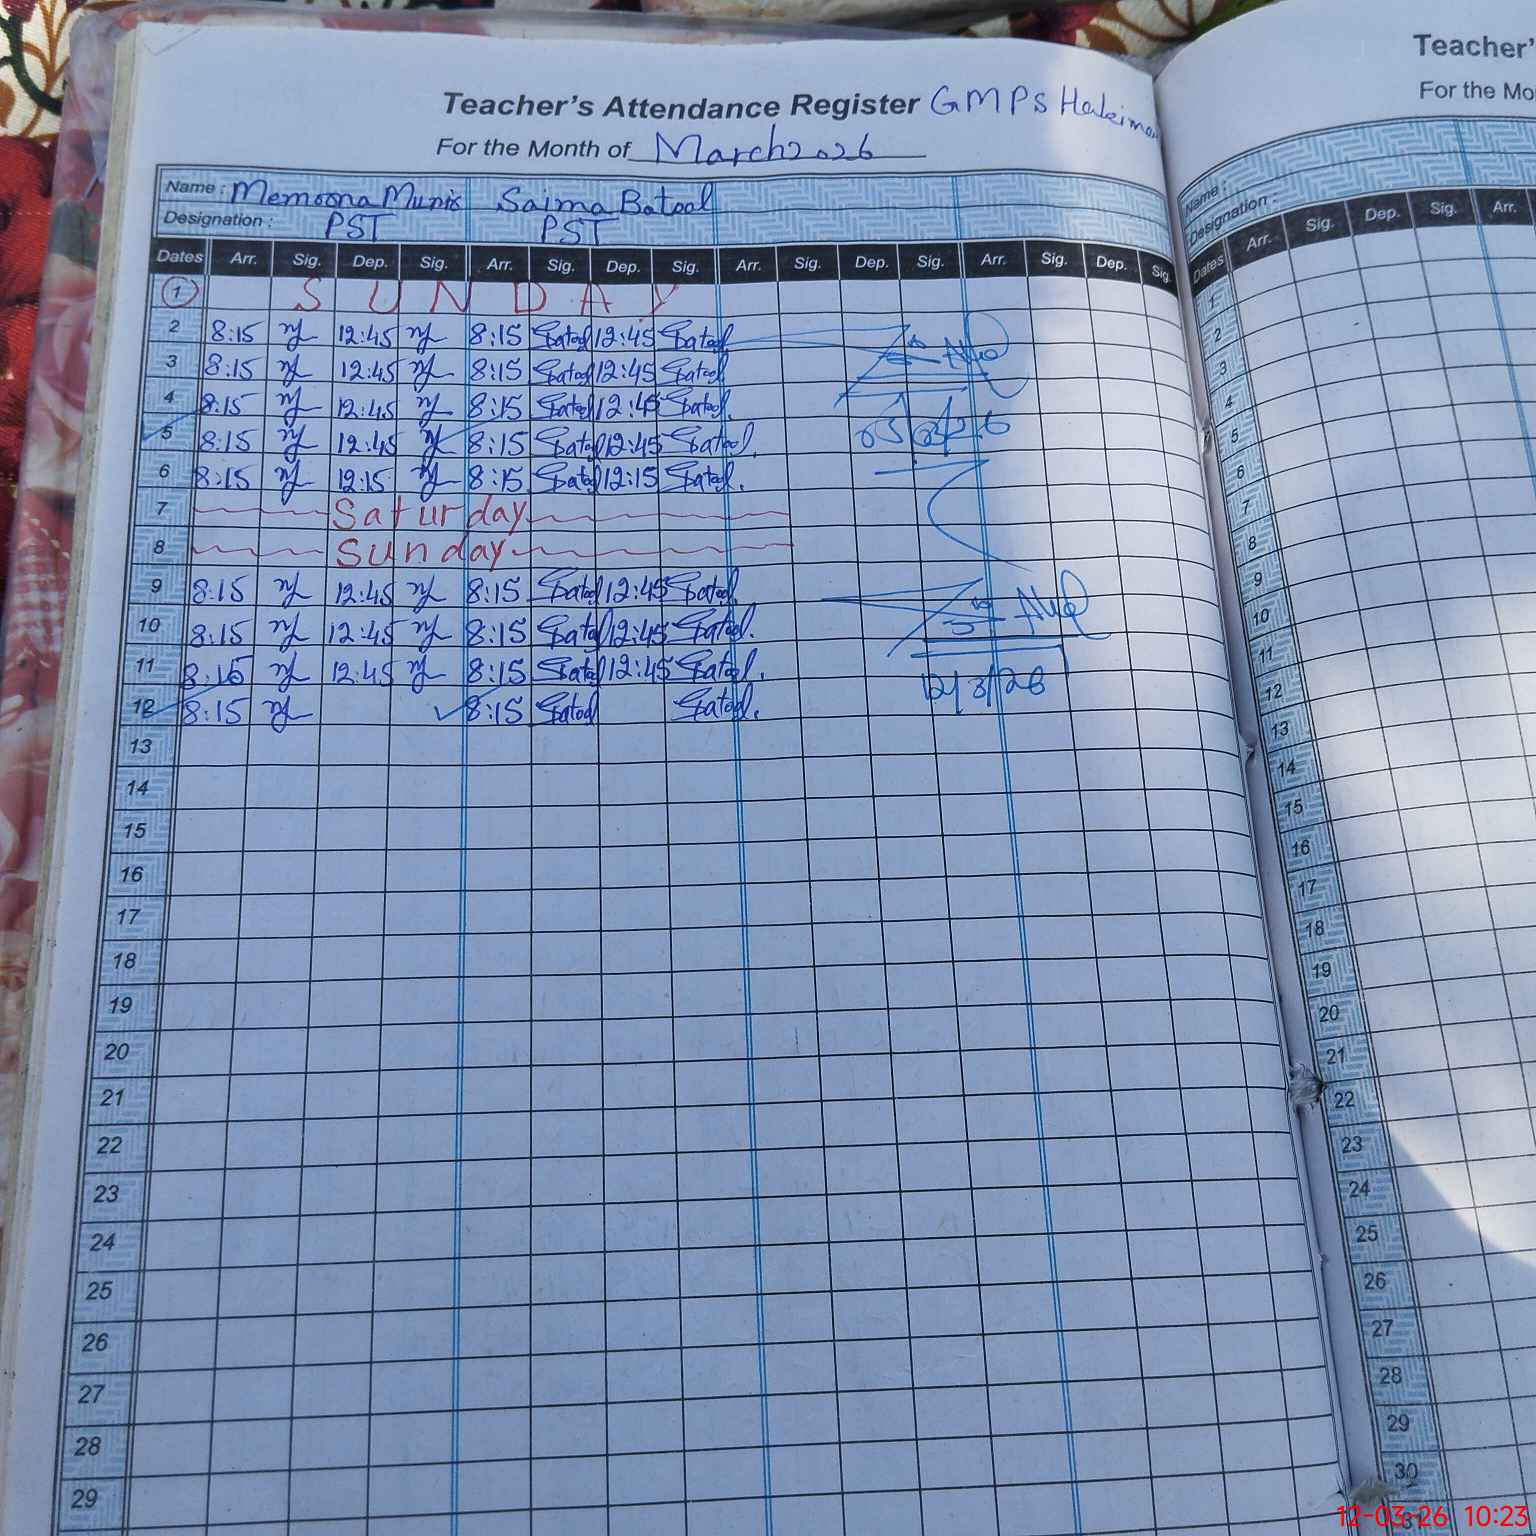 Teacher's Attendance Register GMPS Hakiman
For the Month of March 2026
Name : Memoona Munir Saima Batool
Designation : PST PST
Dates Arr. Sig. Dep. Sig. Arr. Sig. Dep. Sig. Arr. Sig. Dep. Sig. Arr. Sig. Dep. Sig.
1 SUNDAY
2 8:15 12:45 8:15 Batool 12:45 Batool
3 8:15 12:45 8:15 Batool 12:45 Batool
4 8:15 12:45 8:15 Batool 12:45 Batool.
5 8:15 12:45 8:15 Batool 12:45 Batool.
6 8:15 12:15 8:15 Batool 12:15 Batool.
7 Saturday
8 Sunday
9 8:15 12:45 8:15 Batool 12:45 Batool.
10 8:15 12:45 8:15 Batool 12:45 Batool.
11 8:15 12:45 8:15 Batool 12:45 Batool.
12 8:15 8:15 Batool Batool. 12/3/26
13
14
15
16
17
18
19
20
21
22
23
24
25
26
27
28
29
Teacher'
For the Mo
Name :
Designation :
Dates Arr. Sig. Dep. Sig. Arr.
1
2
3
4
5
6
7
8
9
10
11
12
13
14
15
16
17
18
19
20
21
22
23
24
25
26
27
28
29
30
12-03-26 10:23